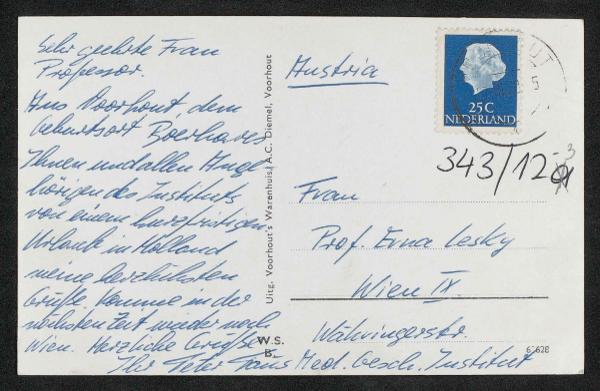 Sehr geehrte Frau
Professor.
Aus Voorhout, dem
Geburtsort Boerhaves
Ihnen und allen Ange-
hörigen des Instituts
von einem kurzfristigen
Urlaub in Holland
meine herzlichsten
Grüße. Komme in der
nächsten Zeit wieder nach
Wien. Herzliche Grüße
Ihr Peter
Uitg. Voorhout's Warenhuis, A.C. Diemel, Voorhout
W.S.
B.
Austria
25C
NEDERLAND
343/12-
Frau
Prof. Erna Lesky
Wien IX.
Währingerstr.
Med. Gesch. Institut